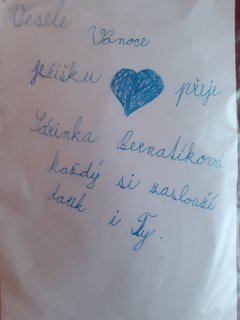 Veselé
Vánoce
ježíšku přeje
Sárinka Bernatíková
každý si zaslouží
darek i Ty.